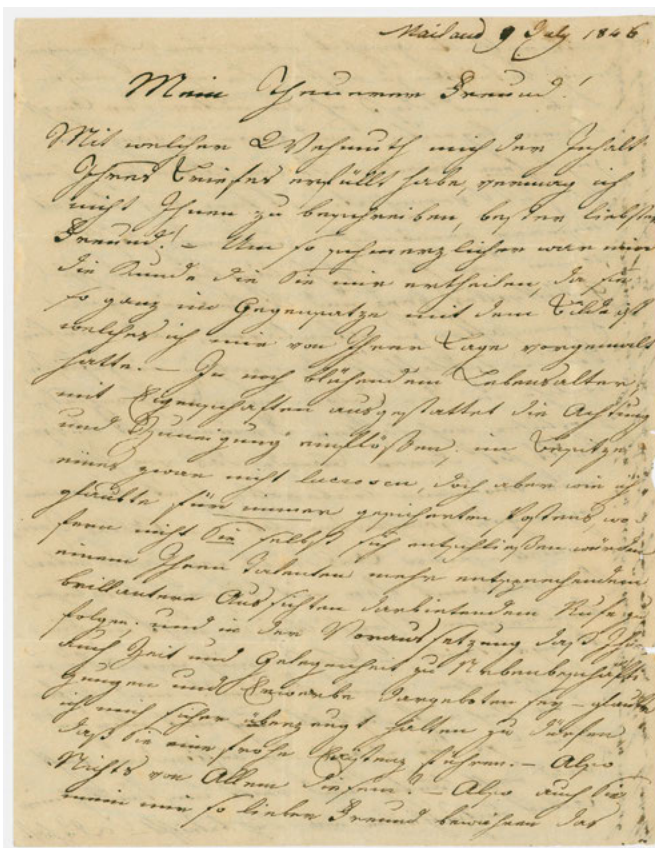 Mailand 9 July 1846
Mein Theurer Freund!
Mit welcher Wehmuth mich der Inhalt
Ihres Briefes erfüllt habe, vermag ich
nicht Ihnen zu beschreiben, bester liebster
Freund! – Um so schmerzlicher war mir
die Kunde die Sie mir ertheilen, da sie
so ganz im Gegensatze mit dem Bilde ist
welches ich mir von Ihrer Lage vorgemalt
hatte. – In noch blühendem Lebensalter
mit Eigenschaften ausgestattet die Achtung
und Zuneigung einflößen, im Besitze
eines zwar nicht lucrosen, doch aber wie ich
glaubte für immer gesicherten Postens, wo
fern nicht Sie selbst sich entschließen würden
einem Ihren Talenten mehr entsprechendem
brillantere Aussichten darbietendem Rufe zu
folgen, und in der Voraussetzung daß Ihnen
auch Zeit und Gelegenheit zu Nebenbeschäfti
gungen und Erwerbe dargeboten sey – glaubte
ich mich sicher überzeugt halten zu dürfen
daß sie eine frohe Existenz führen. – Also
Nichts von Allem diesem! – Also auch Sie
mein mir so lieber Freund bewähren das